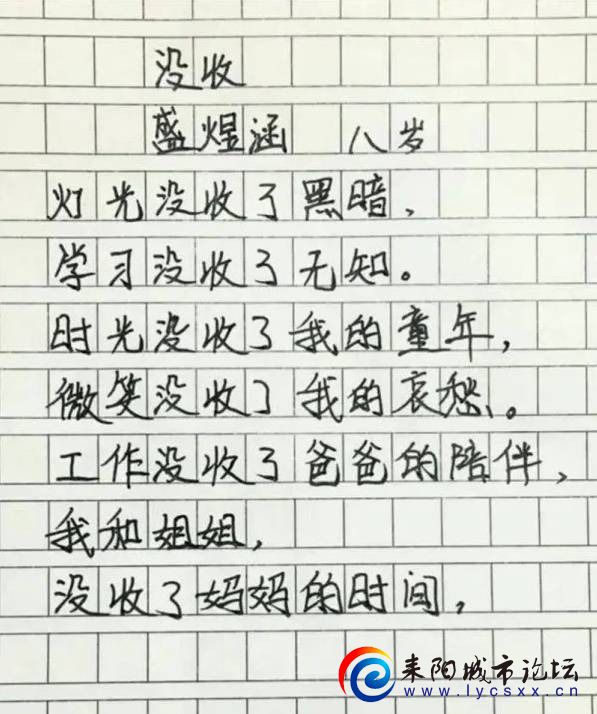 没收
盛煜涵 八岁
灯光没收了黑暗，
学习没收了无知。
时光没收了我的童年，
微笑没收了我的哀愁。
工作没收了爸爸的陪伴，
我和姐姐，
没收了妈妈的时间，
耒阳城市论坛
www.lycsxx.cn